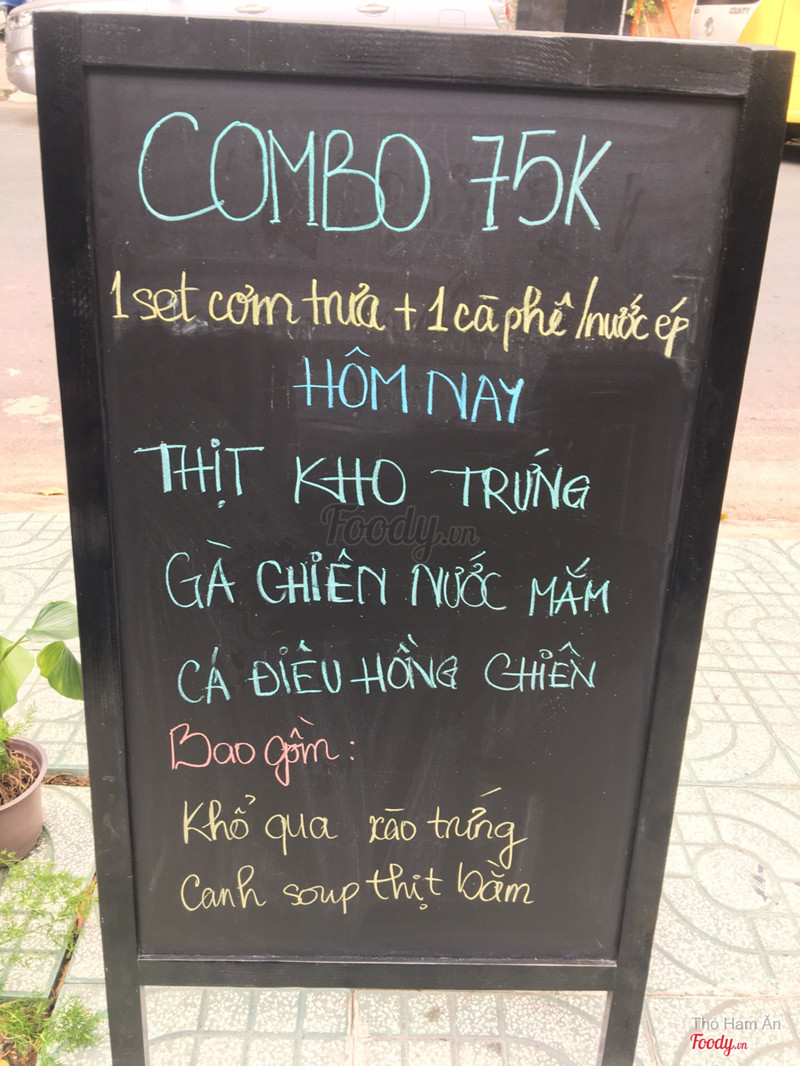 COUNTY
COMBO 75K
1 set cơm trưa + 1 cà phê/nước ép
HÔM NAY
THỊT KHO TRỨNG
Foody.vn
GÀ CHIÊN NƯỚC MẮM
CÁ ĐIÊU HỒNG CHIÊN
Bao gồm:
Khổ qua xào trứng
Canh soup thịt bằm
Thỏ Ham Ăn
Foody.vn